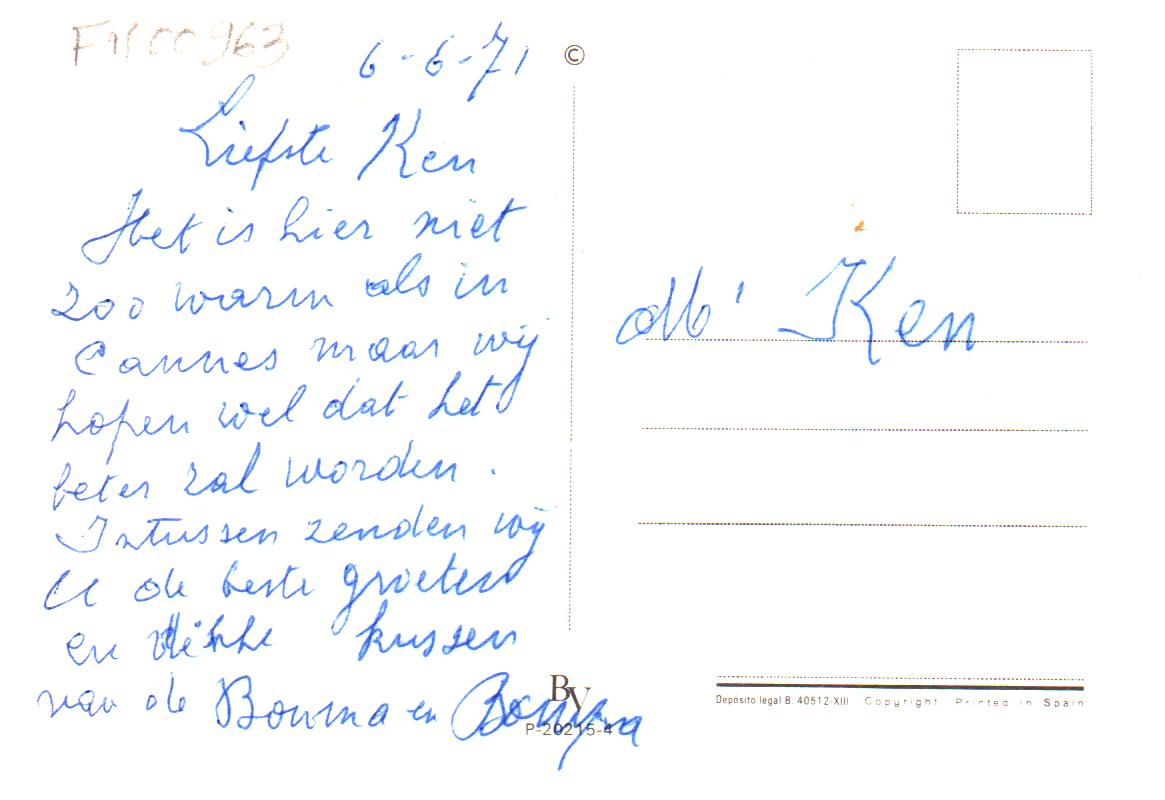 FV CC 963
6-6-71
©
Liefste Ken
Het is hier niet
zoo warm als in
Cannes maar wij
hopen wel dat het
beter zal worden.
Intussen zenden wij
U de beste groeten
en dikke kussen
van de Bouma en Bompa
Ken
BV
P-20215-4
Depósito legal B. 40512-XIII Copyright Printed in Spain